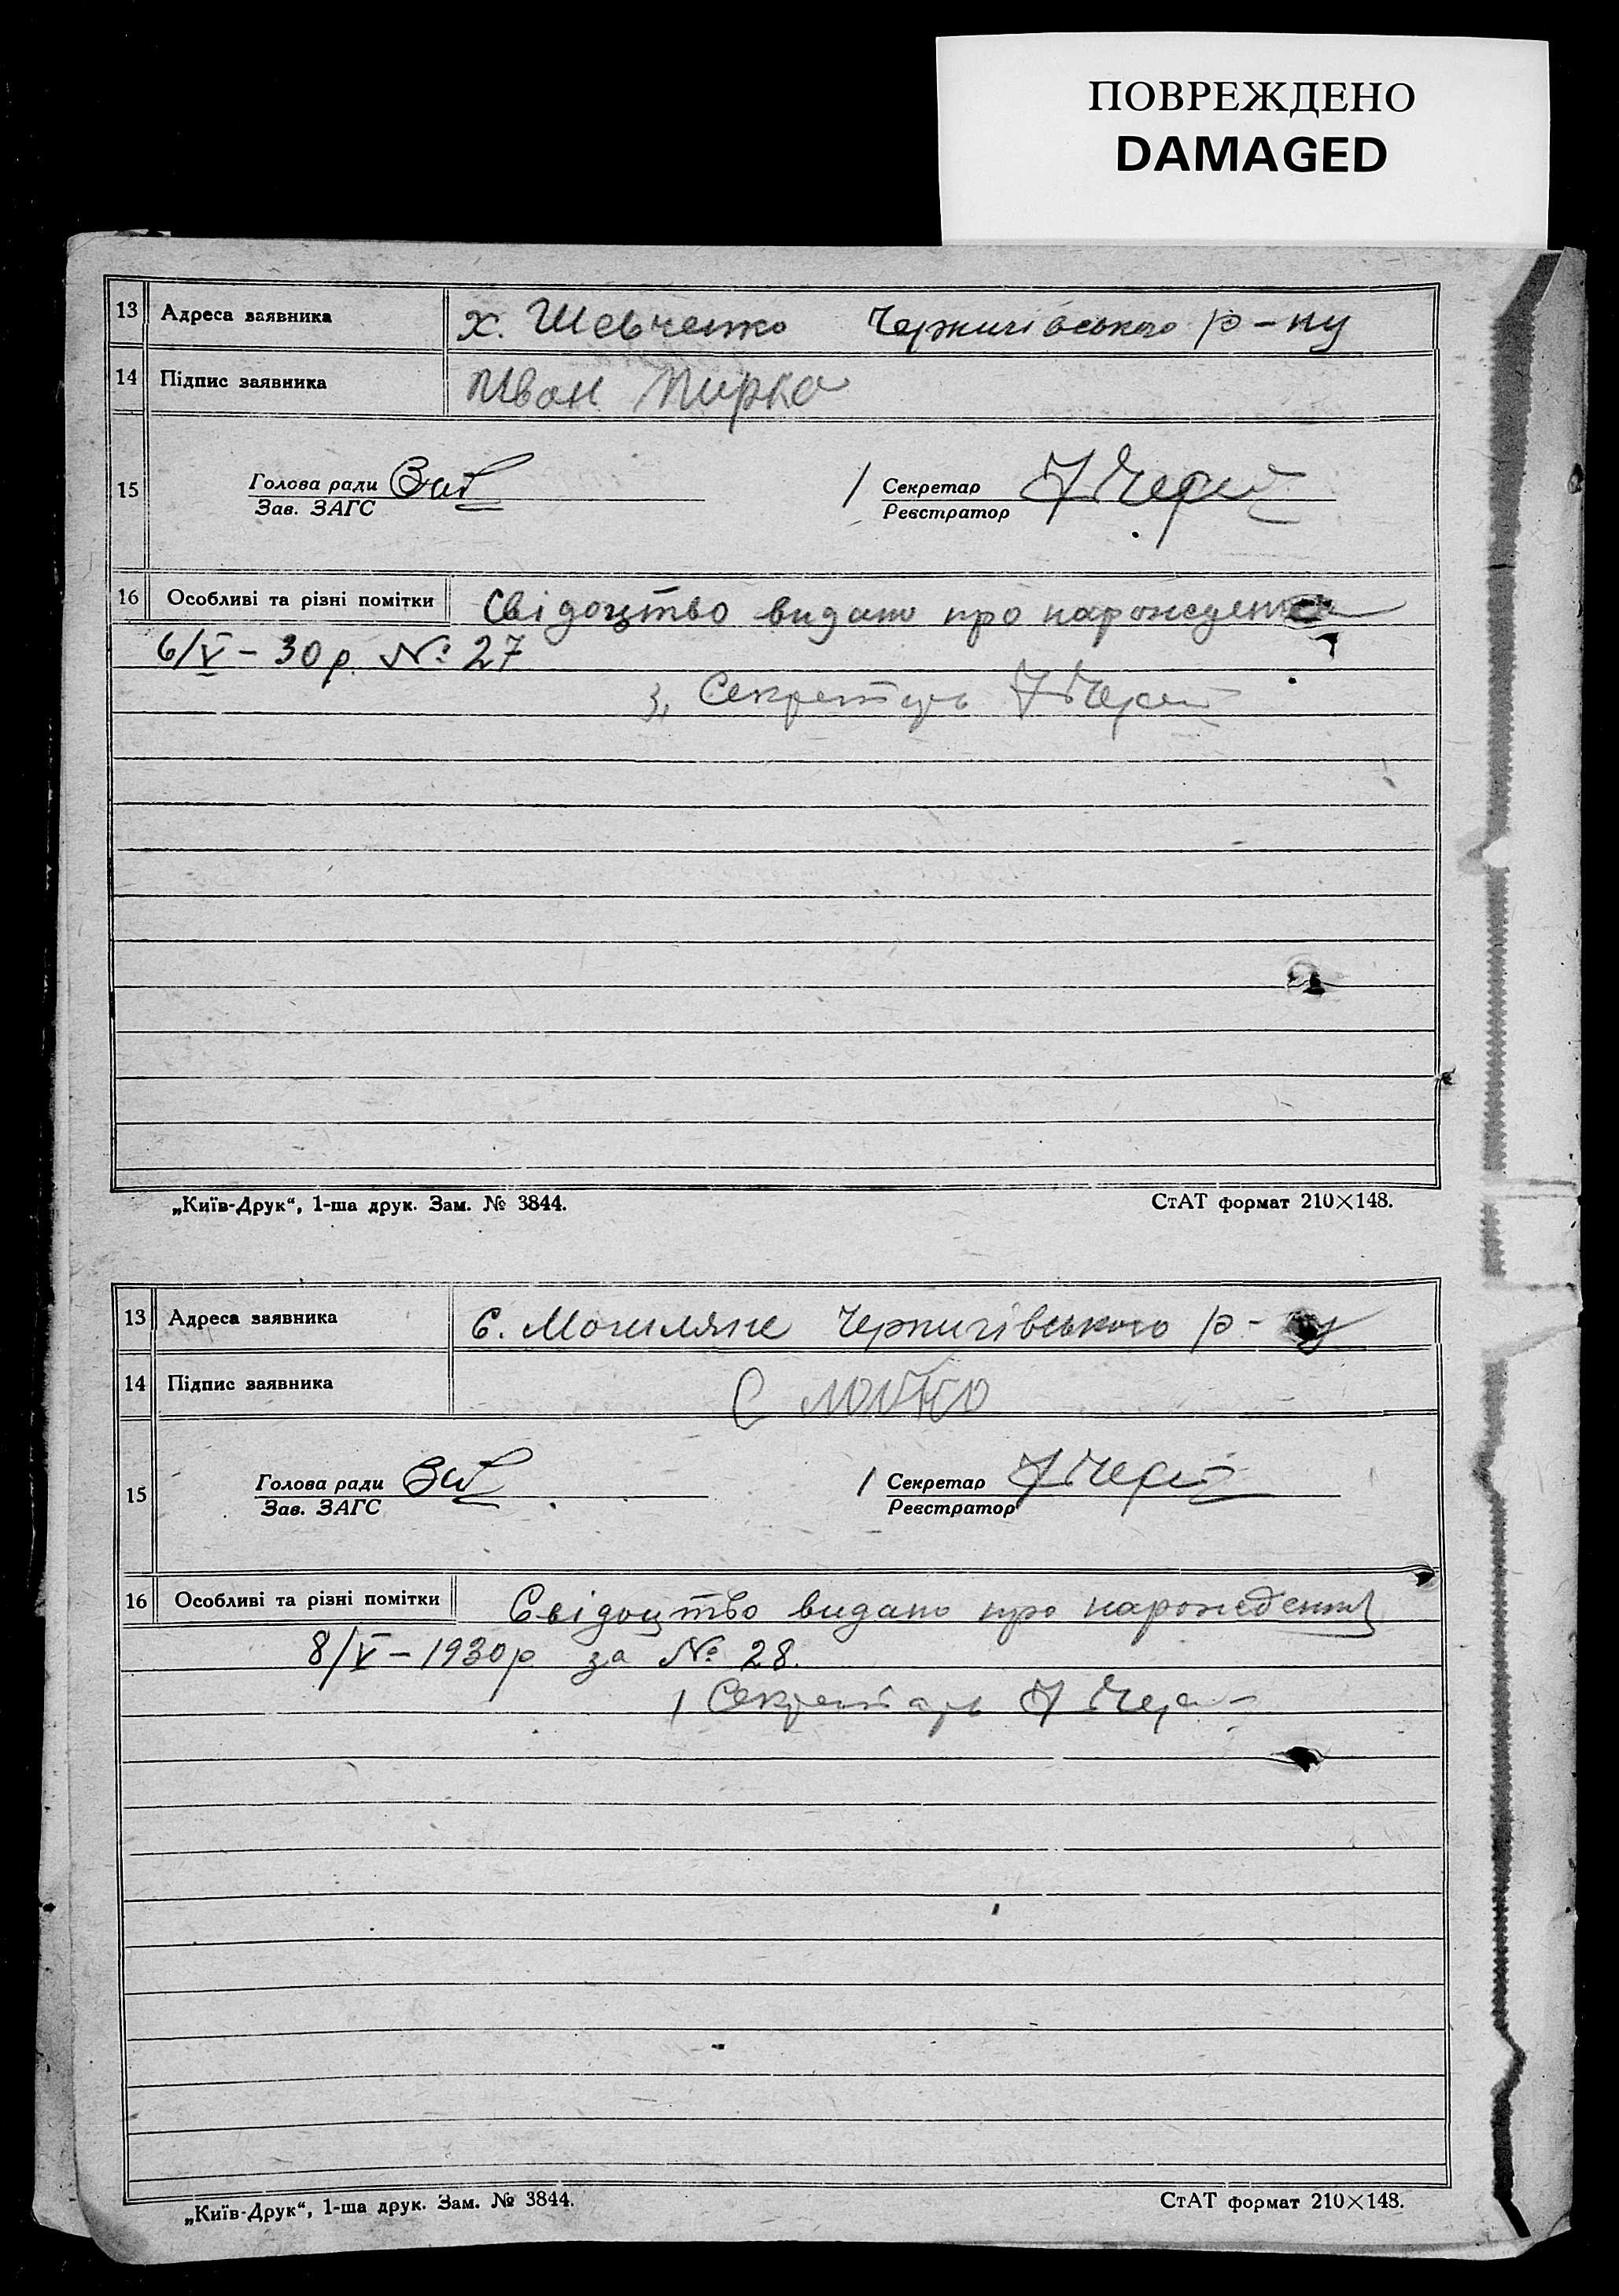 ПОВРЕЖДЕНО
DAMAGED
13 Адреса заявника х. Шевченко Чернигівського р-ну
14 Підпис заявника Иван Пирко
15 Голова ради Секретар
Зав. ЗАГС Реєстратор
16 Особливі та різні помітки Свідоцтво видано про нарождення
6/V – 30 р. № 27
Секретарь
„Київ-Друк“, 1-ша друк. Зам. № 3844. СтАТ формат 210×148.
13 Адреса заявника С. Могиляне Чернигівського р-ну
14 Підпис заявника
15 Голова ради Секретар
Зав. ЗАГС Реєстратор
16 Особливі та різні помітки Свідоцтво видано про нарождення
8/V – 1930 р за № 28.
Секретарь
„Київ-Друк“, 1-ша друк. Зам. № 3844. СтАТ формат 210×148.